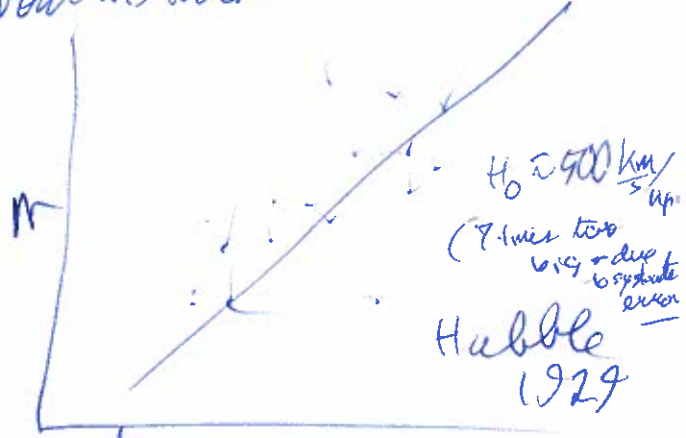 v
H₀ ≈ 500 km/s/Mp
(7 times too
big - due
to systematic
error
Hubble
1929